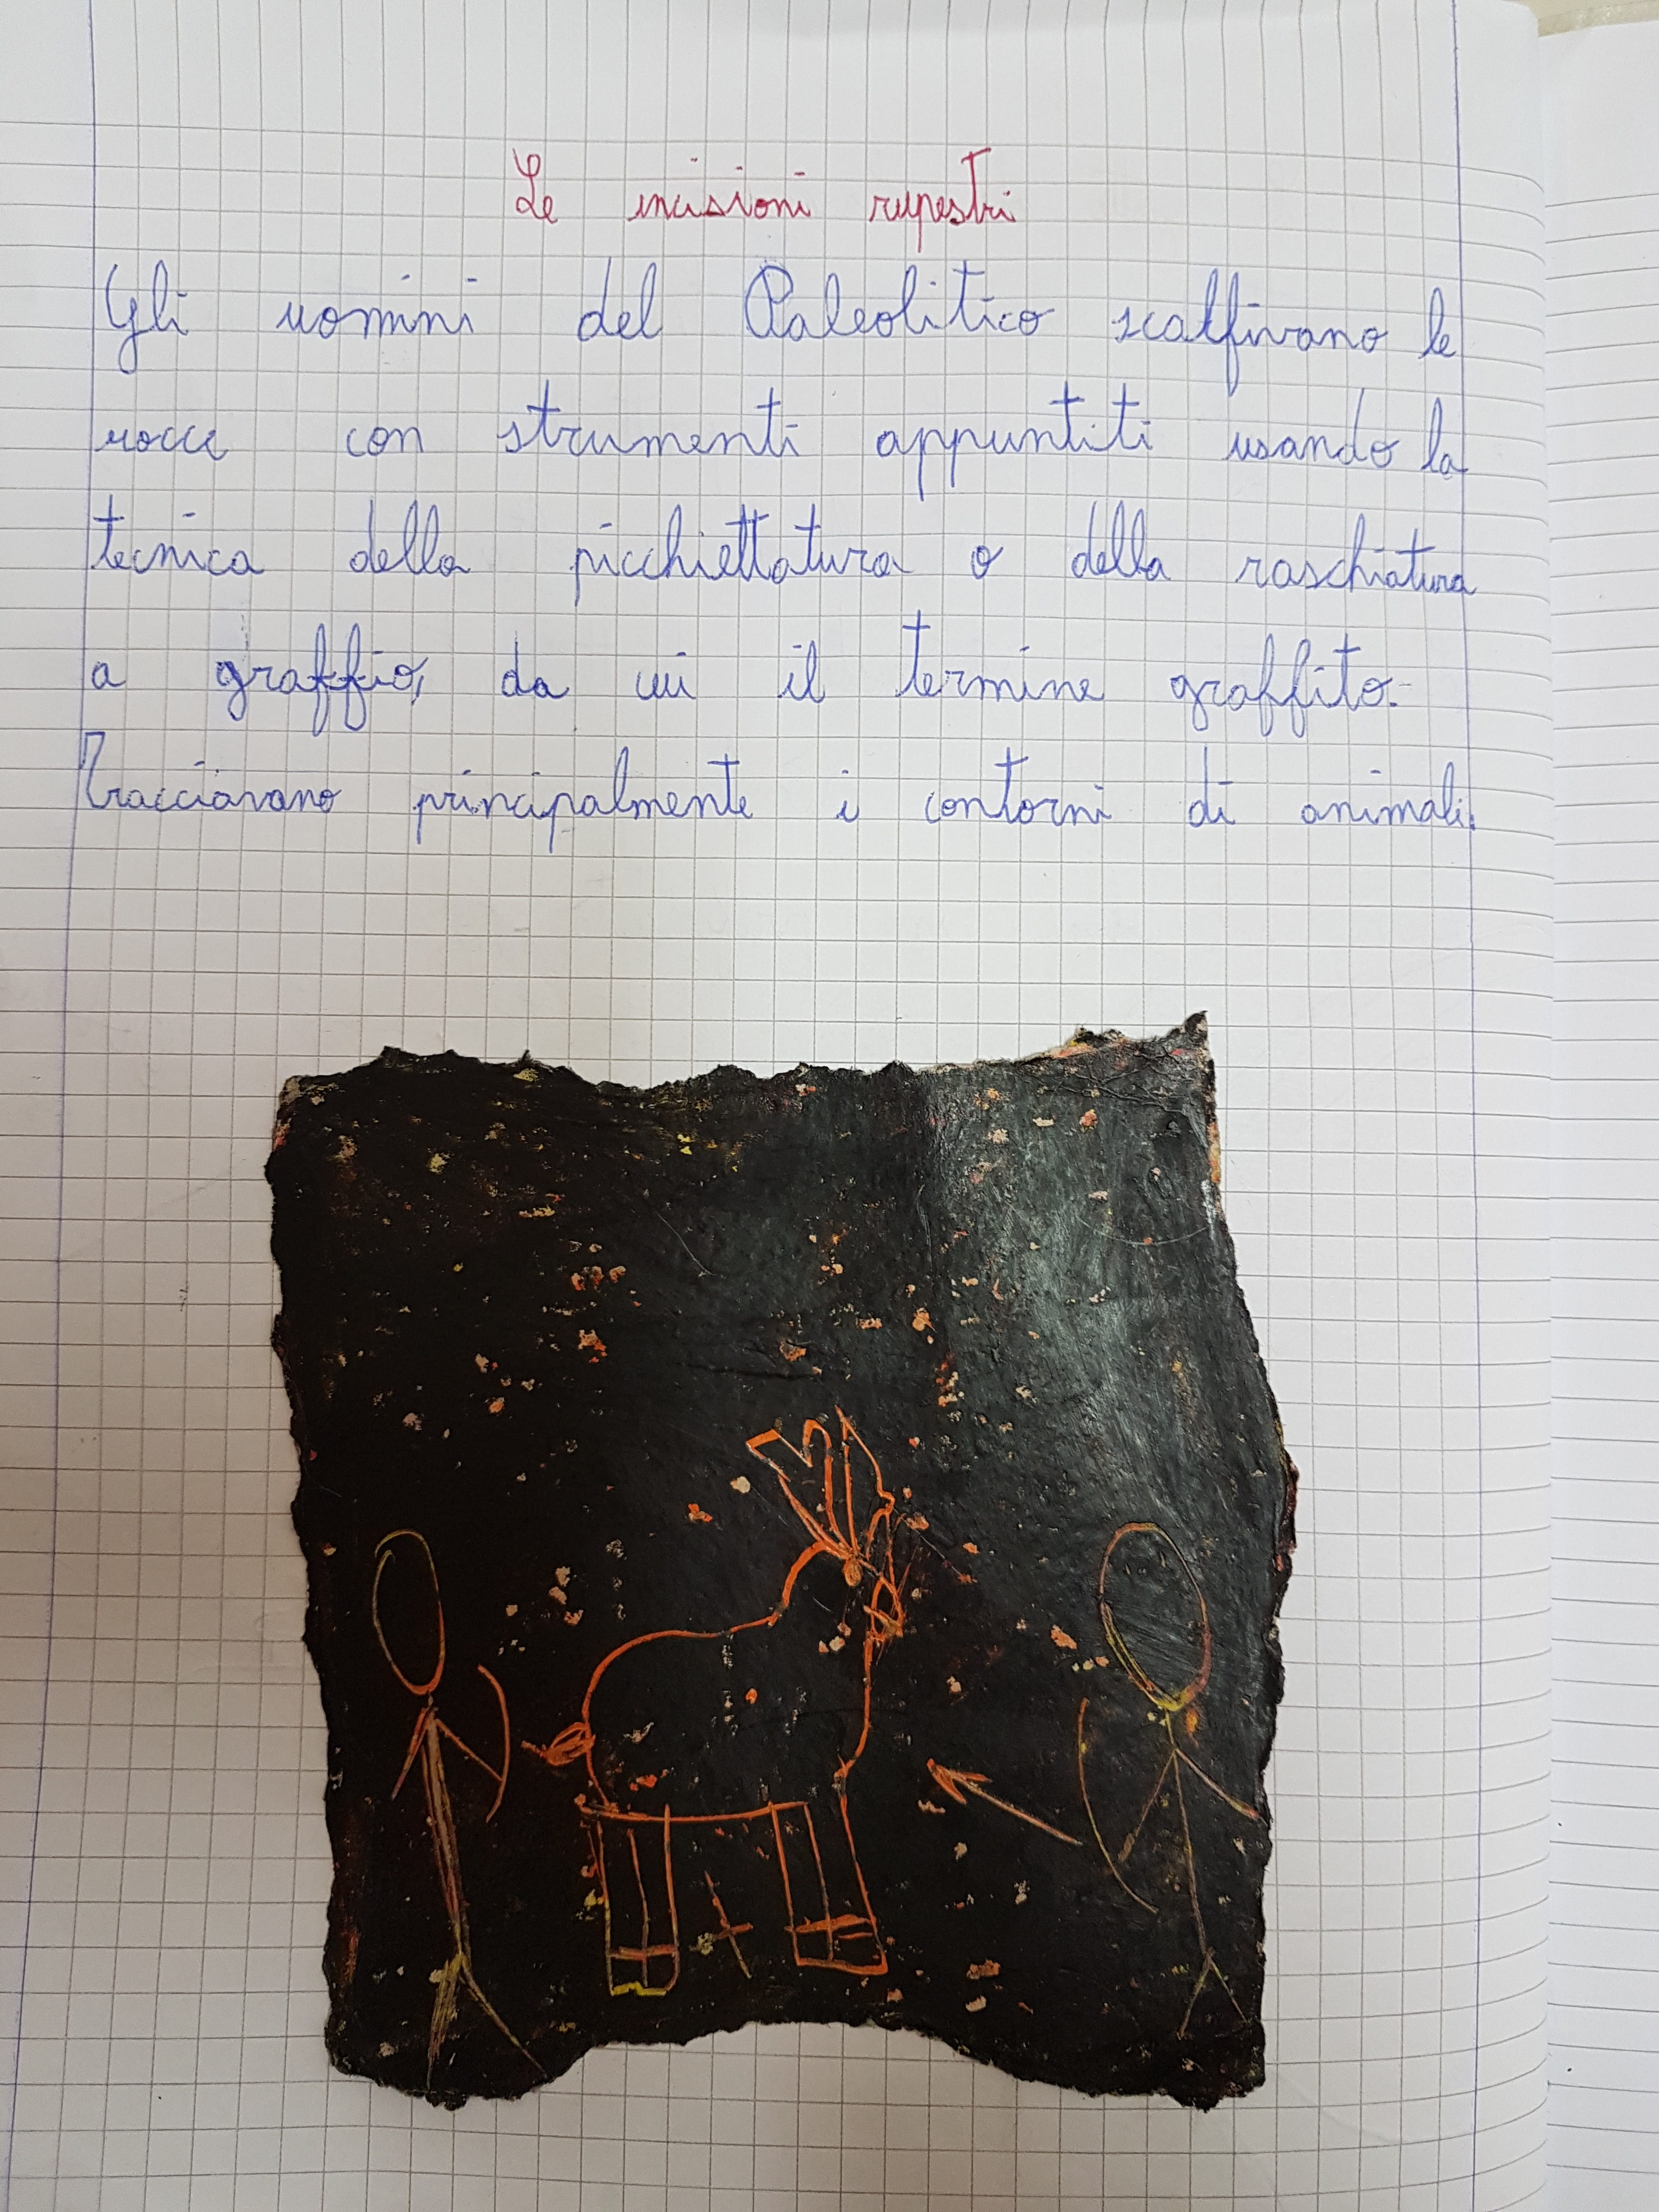 Le incisioni rupestri
Gli uomini del Paleolitico scalfivano le
rocce con strumenti appuntiti usando la
tecnica della picchiettatura o della raschiatura
a graffio, da cui il termine graffito.
Tracciavano principalmente i contorni di animali.